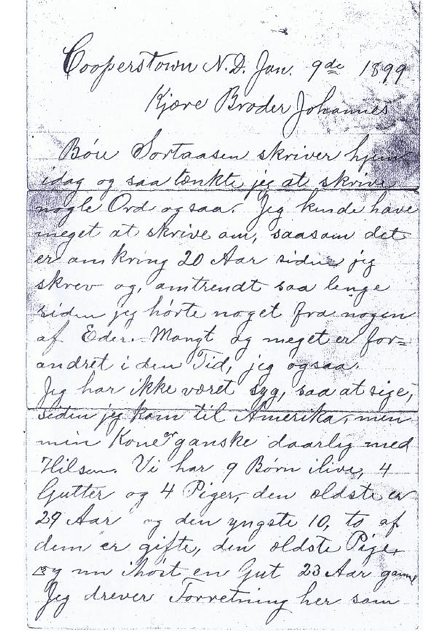 Cooperstown N.D. Jan. 9de 1899
Kjære Broder Johannes
Boie Sortaasen skriver hjem
idag og saa tænkte jeg at skrive
nogle Ord ogsaa. Jeg kunde have
meget at skrive om, saasom det
er omkring 20 Aar siden jeg
skrev og, omtrendt saa lenge
siden jeg hørte noget fra nogen
af Eder. Mangt og meget er for=
andret i den Tid, jeg ogsaa.
Jeg har ikke været syg, saa at sige,
siden jeg kom til Amerika, men
min Kone er ganske daarlig med
Hilsen. Vi har 9 Børn ilive, 4
Gutter og 4 Piger, den eldste er
29 Aar og den yngste 10, to af
dem er gifte, den eldste Pige,
og nu ihøst en Gut 23 Aar gam
Jeg drever Forretning her som